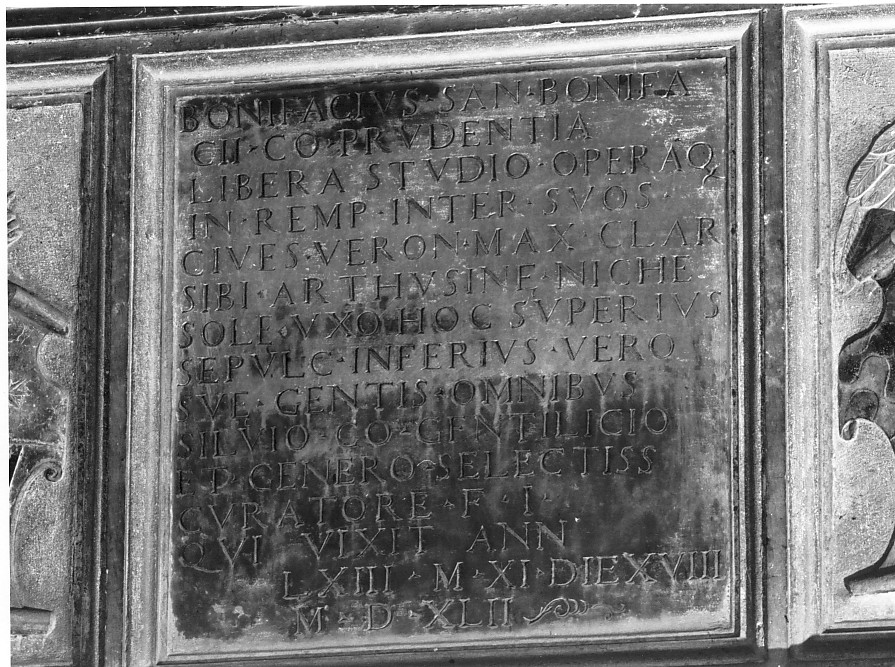 BONIFACIVS·SAN·BONIFA
CII·CO·PRVDENTIA
LIBERA STVDIO·OPERAQ
IN·REMP·INTER·SVOS·
CIVES·VERON·MAX·CLAR
SIBI·ARTHVSINE·NICHE
SOLE·VXO·HOC SVPERIVS
SEPVLC·INFERIVS·VERO
SVE·GENTIS·OMNIBVS
SILVIO·CO·GENTILICIO
ET·GENERO·SELECTISS
CVRATORE·F·I·
QVI VIXIT ANN
LXIII·M·XI·DIEXVIII
M·D·XLII